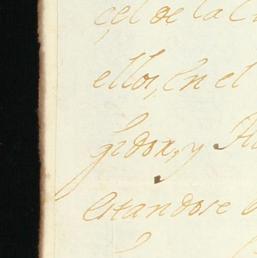 çel de la C
ellos, en el
gidor, y
estandose